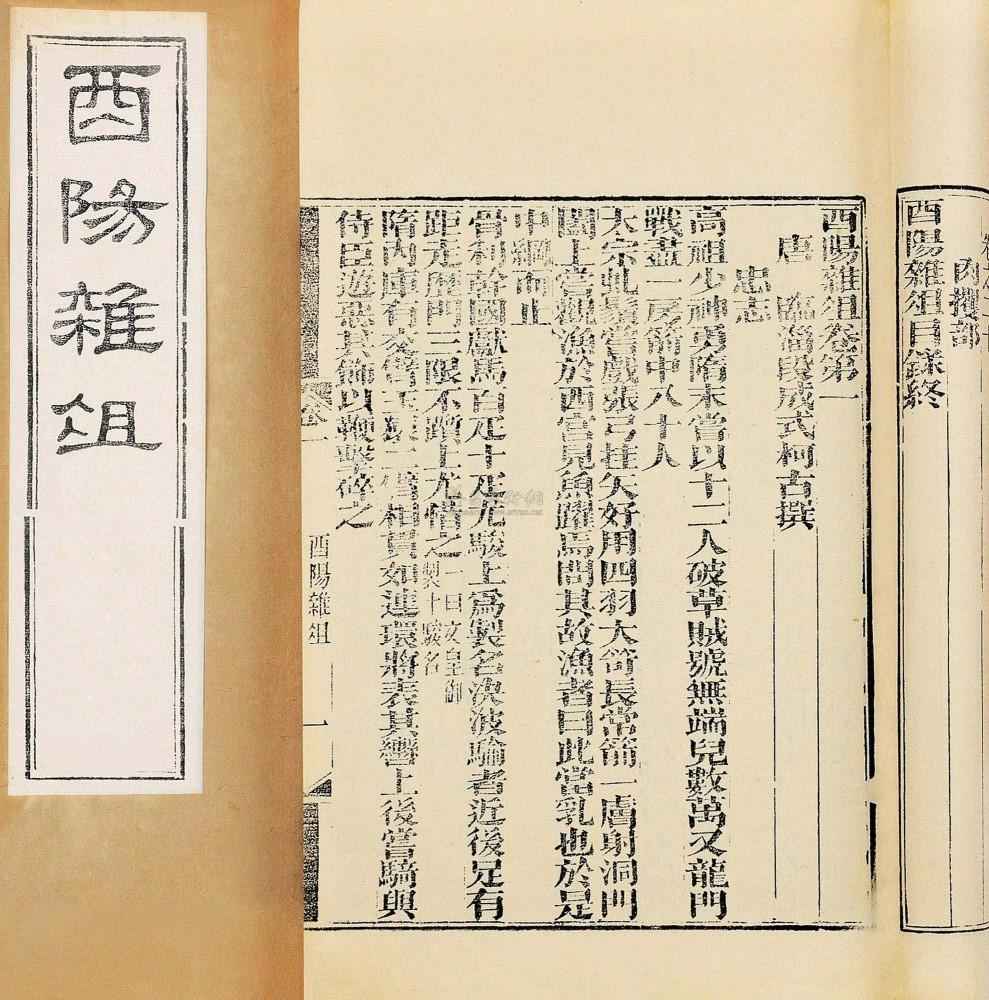 酉陽雜俎
肉攫部
酉陽雜俎目錄終
酉陽雜俎卷第一
唐 臨淄段成式柯古撰
忠志
高祖少神勇隋末嘗以十二人破草賊號無端兒數萬又龍門
戰盡一房箭中八十人
太宗虬鬚嘗戲張弓挂矢好用四羽大笴長常箭一膚射洞門
闔上嘗觀漁於西宮見魚躍焉問其故漁者曰此當乳也於是
中網而止
骨利幹國獻馬百疋十疋尤駿上爲製名決波騟者近後足有
距走歷門三限不躓上尤惜之
一曰文皇御
製十駿名
隋內庫有交臂玉猿二臂相貫如連環將表其轡上後嘗騎與
侍臣遊惡其飾以鞭擊碎之
卷一
酉陽雜俎
一